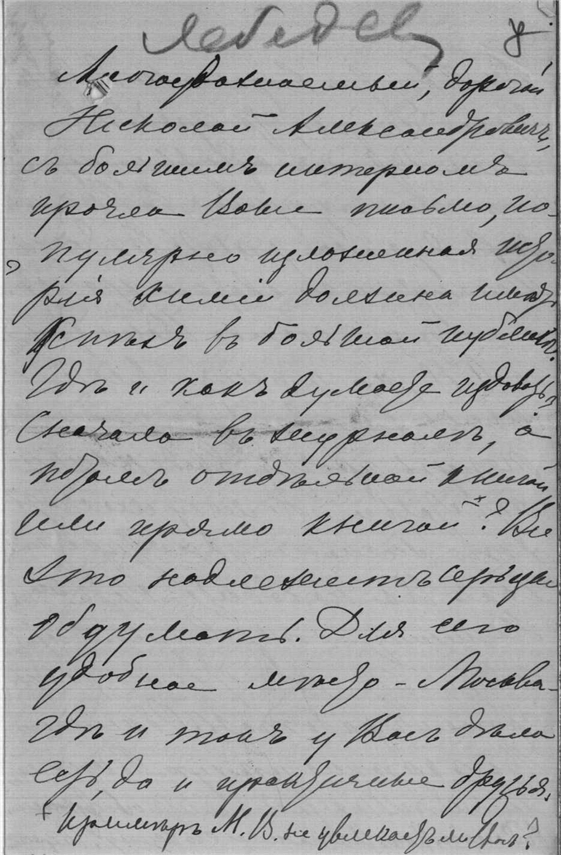 Лебедев
Многоуважаемый, дорогой
Николай Александровичъ,
съ большимъ интересомъ
прочла Ваше письмо, по-
пулярно изложенная исто-
рія химіи должна имѣть
успѣхъ въ большой публикѣ.
Гдѣ и какъ думаете издавать,
сначала въ журналѣ, а
потомъ отдѣльной книгой
или прямо книгой+? Все
это надлежитъ серьезно
обдумать. Для сего
удобное мѣсто - Москва-
гдѣ и такъ у Васъ дѣла
есть, да и практичные друзья.
+ Примѣръ М. В. не увлекаетъ ли Васъ?